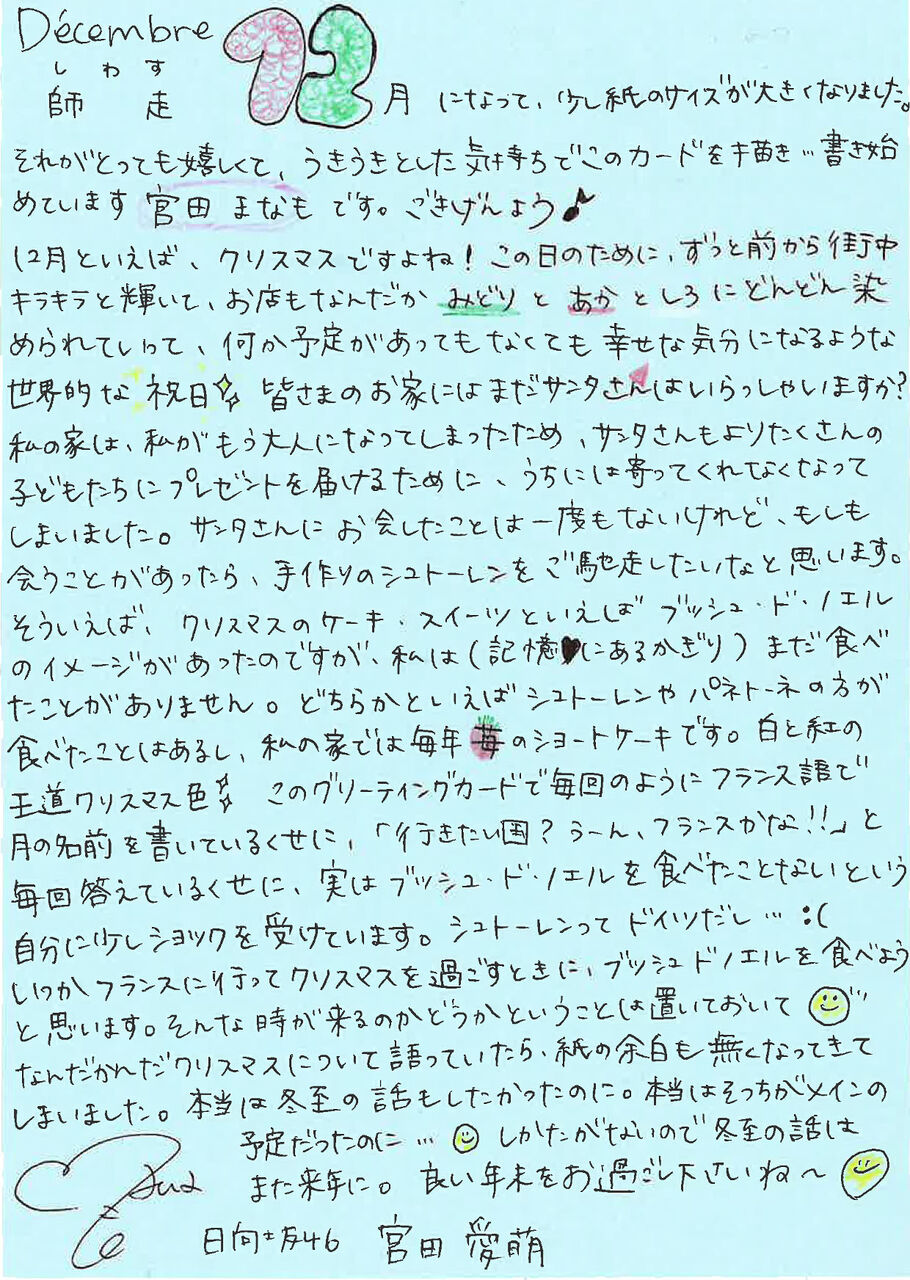 Décembre
しわす
師走 12月 になって、少し紙のサイズが大きくなりました。
それがとっても嬉しくて、うきうきとした気持ちでこのカードを描き…書き始
めています 宮田 まなも です。ごきげんよう♪
12月といえば、クリスマスですよね！この日のために、ずっと前から街中
キラキラと輝いて、お店もなんだか みどり と あか と しろ にどんどん染
められていって、何か予定があってもなくても幸せな気分になるような
世界的な 祝日 皆さまのお家にはまだサンタさんはいらっしゃいますか？
私の家は、私がもう大人になってしまったため、サンタさんもよりたくさんの
子どもたちにプレゼントを届けるために、うちには寄ってくれなくなって
しまいました。サンタさんにお会したことは一度もないけれど、もしも
会うことがあったら、手作りのシュトーレンをご馳走したいなと思います。
そういえば、クリスマスのケーキ・スイーツといえば ブッシュ・ド・ノエル
のイメージがあったのですが、私は（記憶♥にあるかぎり）まだ食べ
たことがありません。どちらかといえばシュトーレンや パネトーネの方が
食べたことはあるし、私の家では毎年 苺 のショートケーキです。白と紅の
王道クリスマス色 このグリーティングカードで毎回のようにフランス語で
月の名前を書いているくせに、「行きたい国？うーん、フランスかな！！」と
毎回答えているくせに、実はブッシュ・ド・ノエルを食べたことないという
自分に少しショックを受けています。シュトーレンって ドイツだし… :(
いつかフランスに行ってクリスマスを過ごすときに、ブッシュドノエルを食べよう
と思います。そんな時が来るのかどうかということは置いておいて
なんだかんだクリスマスについて語っていたら、紙の余白も無くなってきて
しまいました。本当は冬至の話もしたかったのに。本当はそっちがメインの
予定だったのに… しかたがないので冬至の話は
また来年に。良い年末をお過ごし下さいね〜
日向坂46 宮田 愛萌